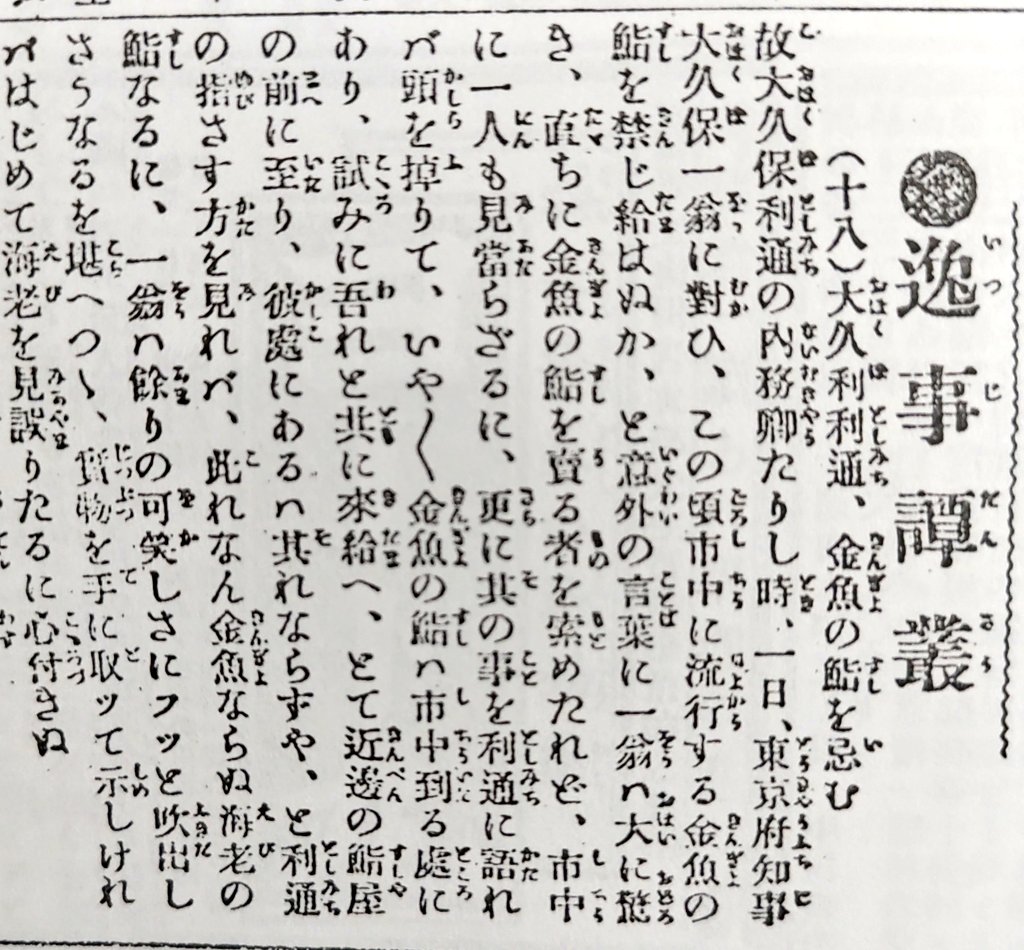 ●逸事譚叢
(十八)大久利利通、金魚の鮨を忌む
故大久保利通の内務卿たりし時、一日、東京府知事
大久保一翁に對ひ、この頃市中に流行する金魚の
鮨を禁じ給はぬか、と意外の言葉に一翁ハ大に驚
き、直ちに金魚の鮨を賣る者を索めたれど、市中
に一人も見當らざるに、更に其の事を利通に語れ
バ頭を掉りて、いや〱金魚の鮨ハ市中到る處に
あり、試みに吾れと共に來給へ、とて近邊の鮨屋
の前に至り、彼處にあるハ其れならずや、と利通
の指さす方を見れバ、此れなん金魚ならぬ海老の
鮨なるに、一翁ハ餘りの可笑しさにフッと吹出し
さうなるを堪へつゝ、實物を手に取ッて示しけれ
バはじめて海老を見誤りたるに心付きぬ